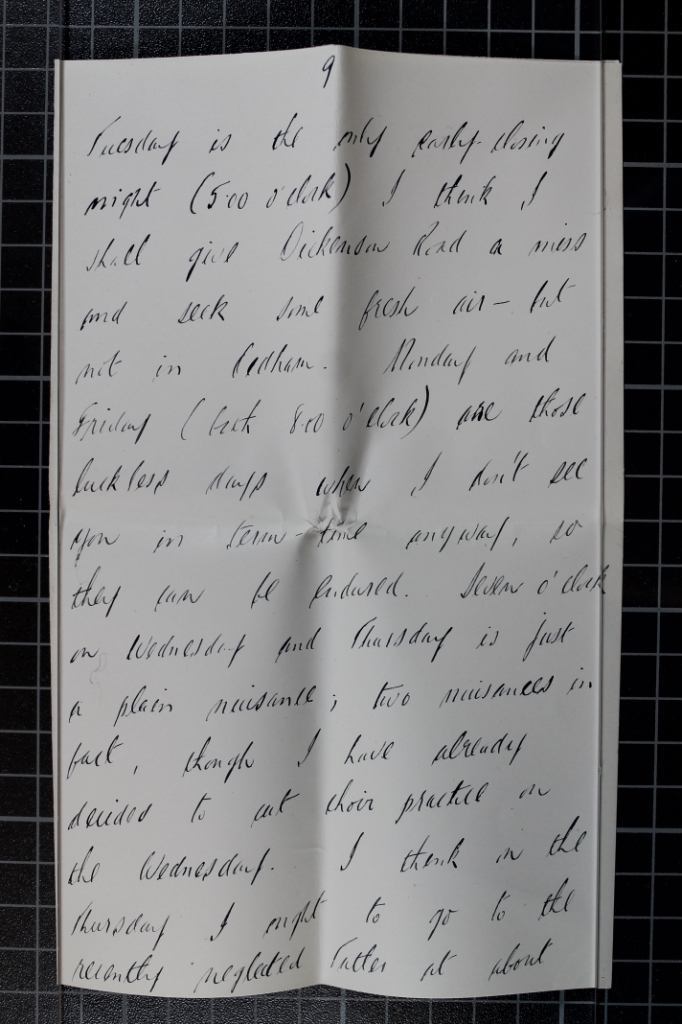 9
Tuesday is the only early-closing
night (5.00 o'clock) I think I
shall give Dickenson Road a miss
and seek some fresh air – but
not in Pedham. Monday and
Friday (both 8.00 o'clock) are those
luckless days when I don't see
you in term-time anyway, so
they can be endured. Seven o'clock
on Wednesday and Thursday is just
a plain nuisance; two nuisances in
fact, though I have already
decided to cut choir practice on
the Wednesday. I think on the
Thursday I ought to go to the
recently neglected at about